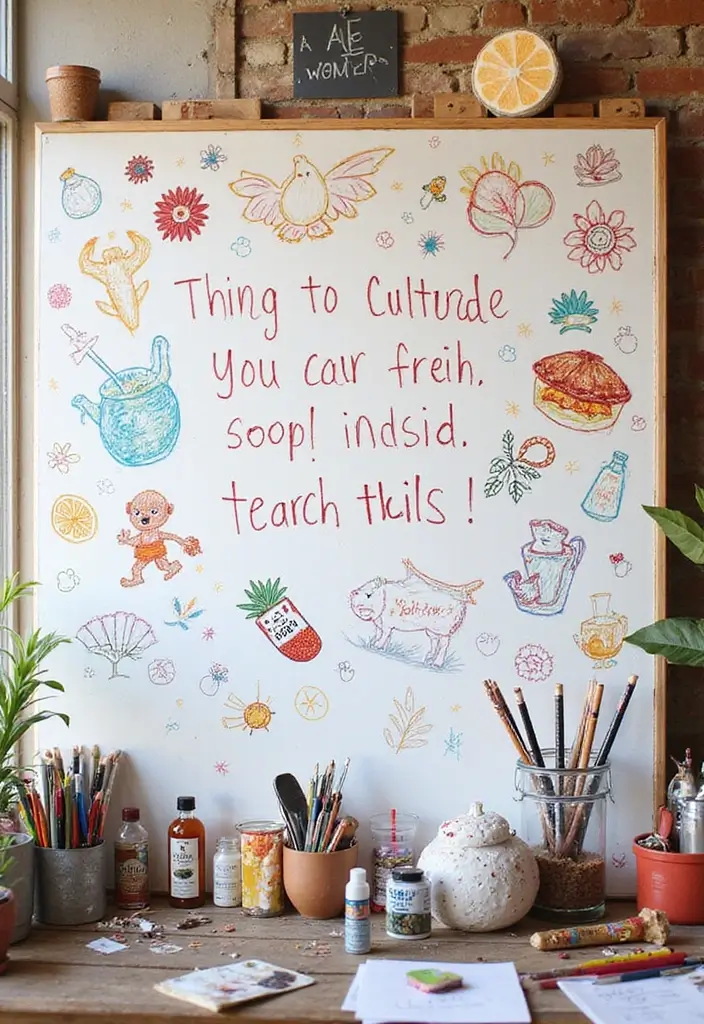 A ALE
WOMER
Thing to Culturde
You caır freıh.
soop! indsid.
tearch tkils!